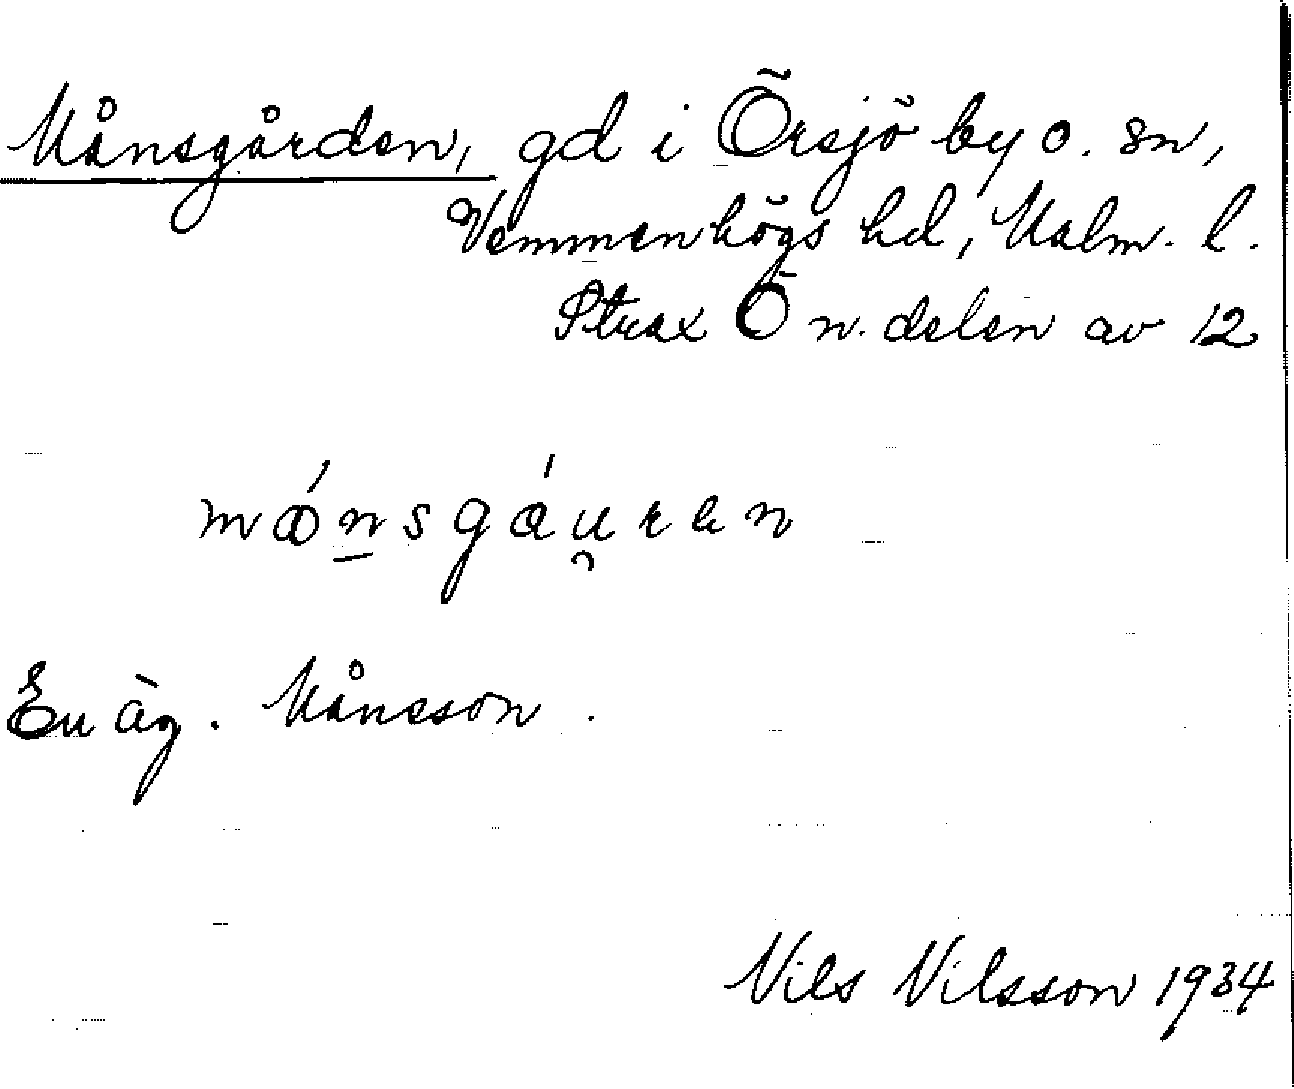 Månsgården, gd i Örsjö by o. sn,
Vemmenhögs hd, Malm. l.
Strax Ö n. delen av 12
mǿn̲sgáu̯ren
En äg. Månsson.
Nils Nilsson 1934